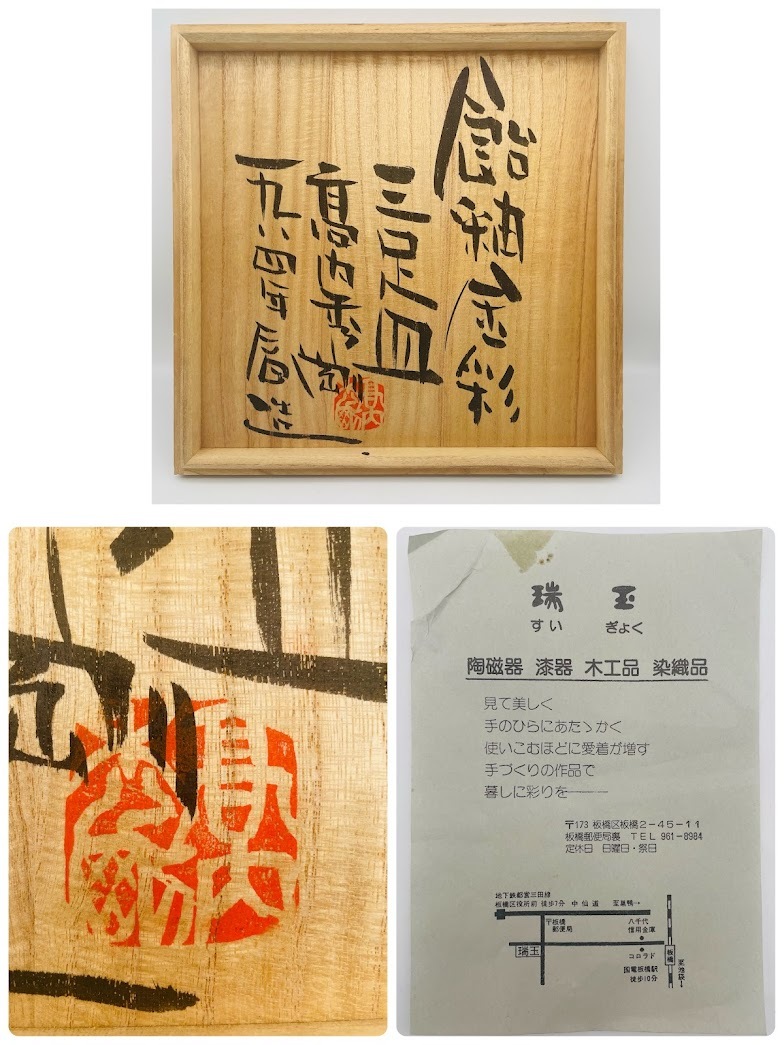 飴釉金彩
三足皿
高内秀剛
一九八四年
造
高内
瑞玉
すい ぎょく
陶磁器 漆器 木工品 染織品
見て美しく
手のひらにあたゝかく
使いこむほどに愛着が増す
手づくりの作品で
暮しに彩りを───
〒173 板橋区板橋2-45-11
板橋郵便局裏 TEL 961-8984
定休日 日曜日・祭日
地下鉄都営三田線
板橋区役所前 徒歩7分 中仙道 至巣鴨→
〒板橋
郵便局
八千代
信用金庫
瑞玉
コロラド
板橋
至池袋→
国電板橋駅
徒歩10分